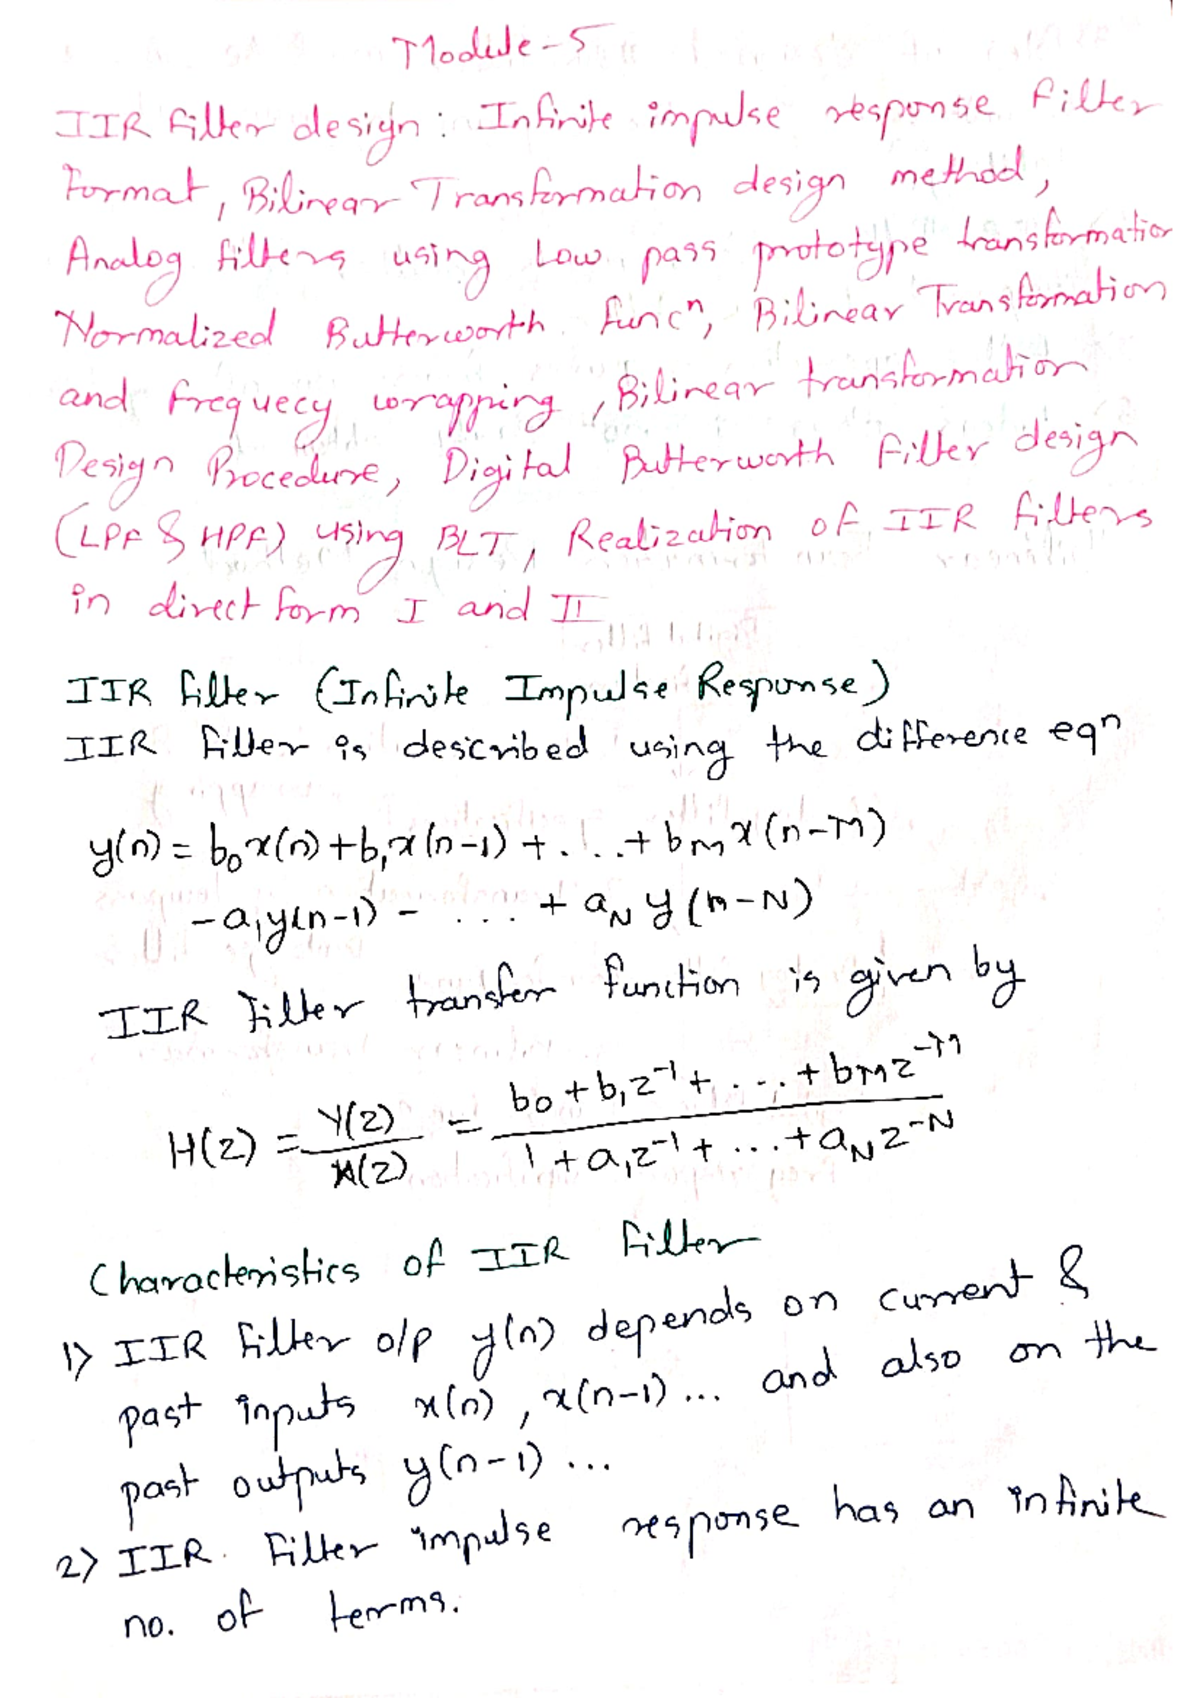 Module-5
IIR filter design: Infinite impulse response filter
Format, Bilinear Transformation design method,
Analog filters using Low pass prototype transformation
Normalized Butterworth funcⁿ, Bilinear Transformation
and frequecy wrapping, Bilinear transformation
Design Procedure, Digital Butterworth Filter design
(LPF & HPF) using BLT, Realization of IIR filters
in direct form I and II
IIR filter (Infinite Impulse Response)
IIR filter is described using the difference eqⁿ
y(n) = b₀x(n) + b₁x(n-1) + ... + b_M x(n-M)
-a₁y(n-1) - .... + a_N y(n-N)
IIR Filter transfer function is given by
H(z) = Y(z)/X(z) = (b₀ + b₁z⁻¹ + ... + b_M z^-M)/(1 + a₁z⁻¹ + ... + a_N z^-N)
Characteristics of IIR filter
1) IIR filter o/p y(n) depends on current &
past inputs x(n), x(n-1) ... and also on the
past outputs y(n-1) ...
2) IIR. Filter impulse response has an infinite
no. of terms.